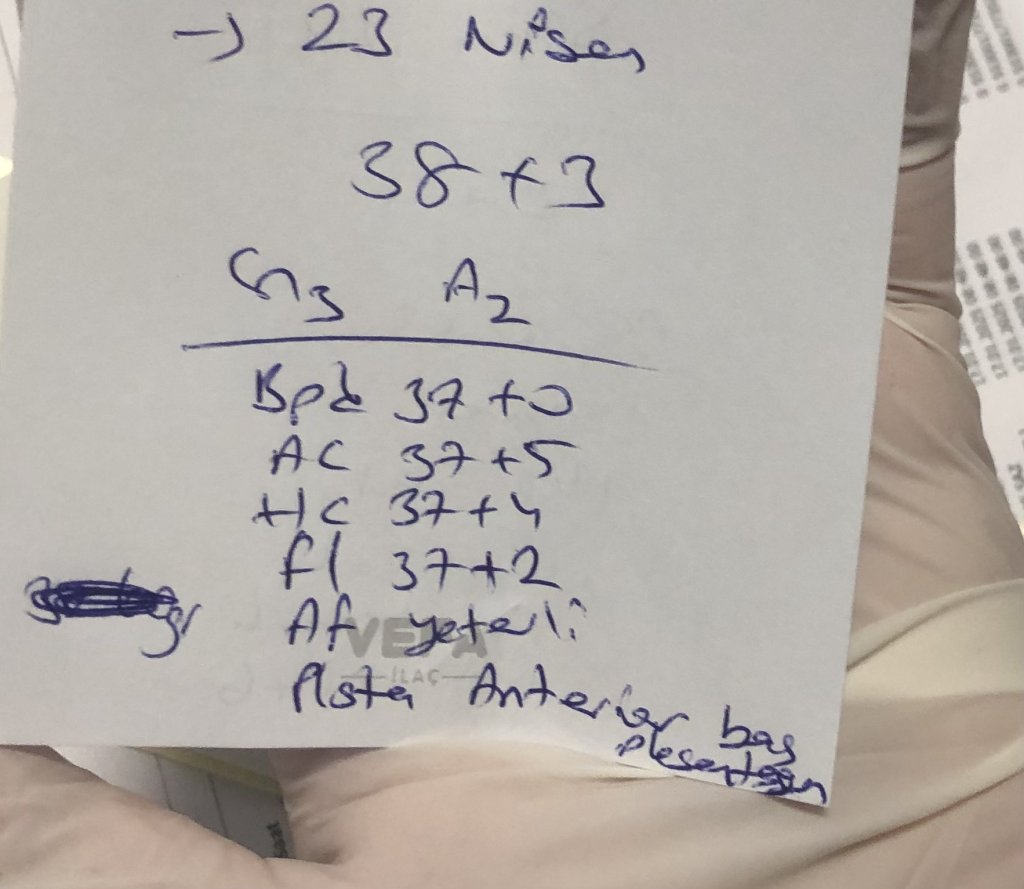 → 23 Nisan
38+3
G3 A2
Bpd 37+0
AC 37+5
HC 37+4
fl 37+2
Af yeterli
VEFA
İLAÇ
Plsta Anterior baş
plesentasyon